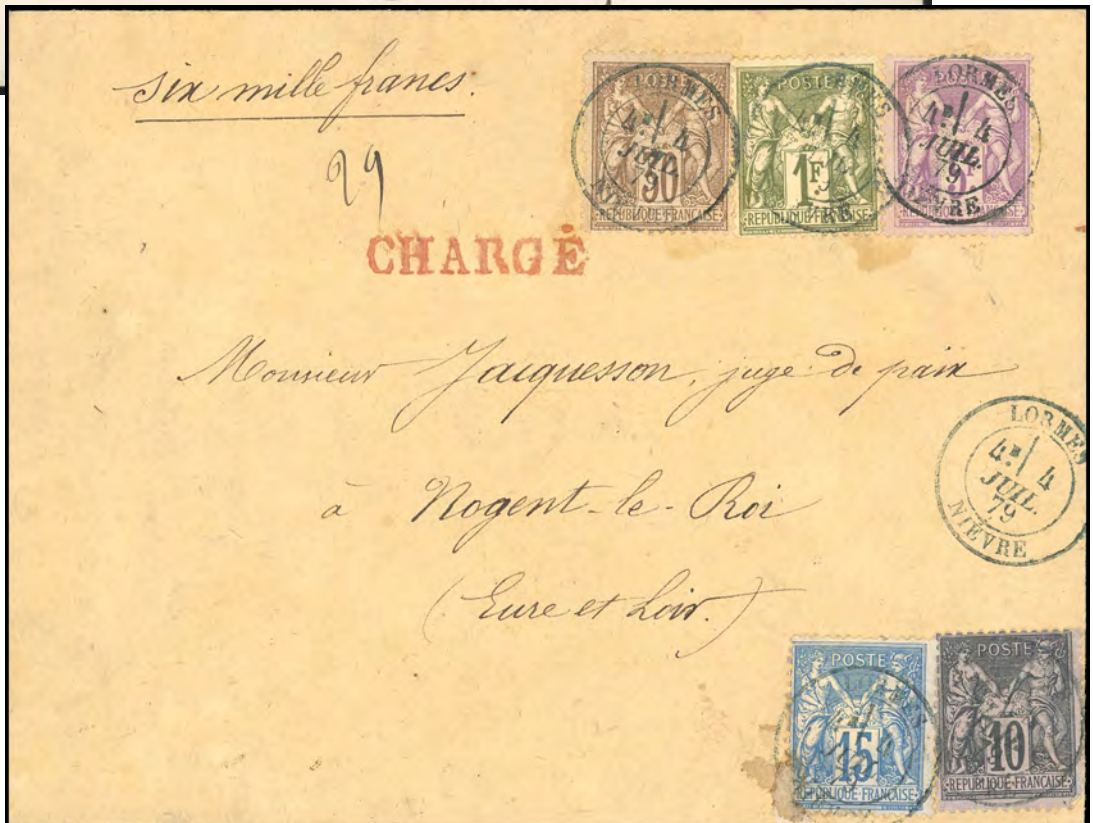 six mille francs.
29
LORMES
4ᴱ/ 4
JUIL.
79
REPUBLIQUE FRANÇAISE
POSTES
1F
REPUBLIQUE FRANÇAISE
LORMES
4ᴱ/ 4
JUIL.
79
NIÈVRE
CHARGÉ
Monsieur Jacquesson, juge de paix
à Nogent-le-Roi
(Eure et Loir.)
LORMES
4ᴱ/ 4
JUIL.
79
NIÈVRE
POSTE
15
REPUBLIQUE FRANÇAISE
POSTE
10
REPUBLIQUE FRANÇAISE